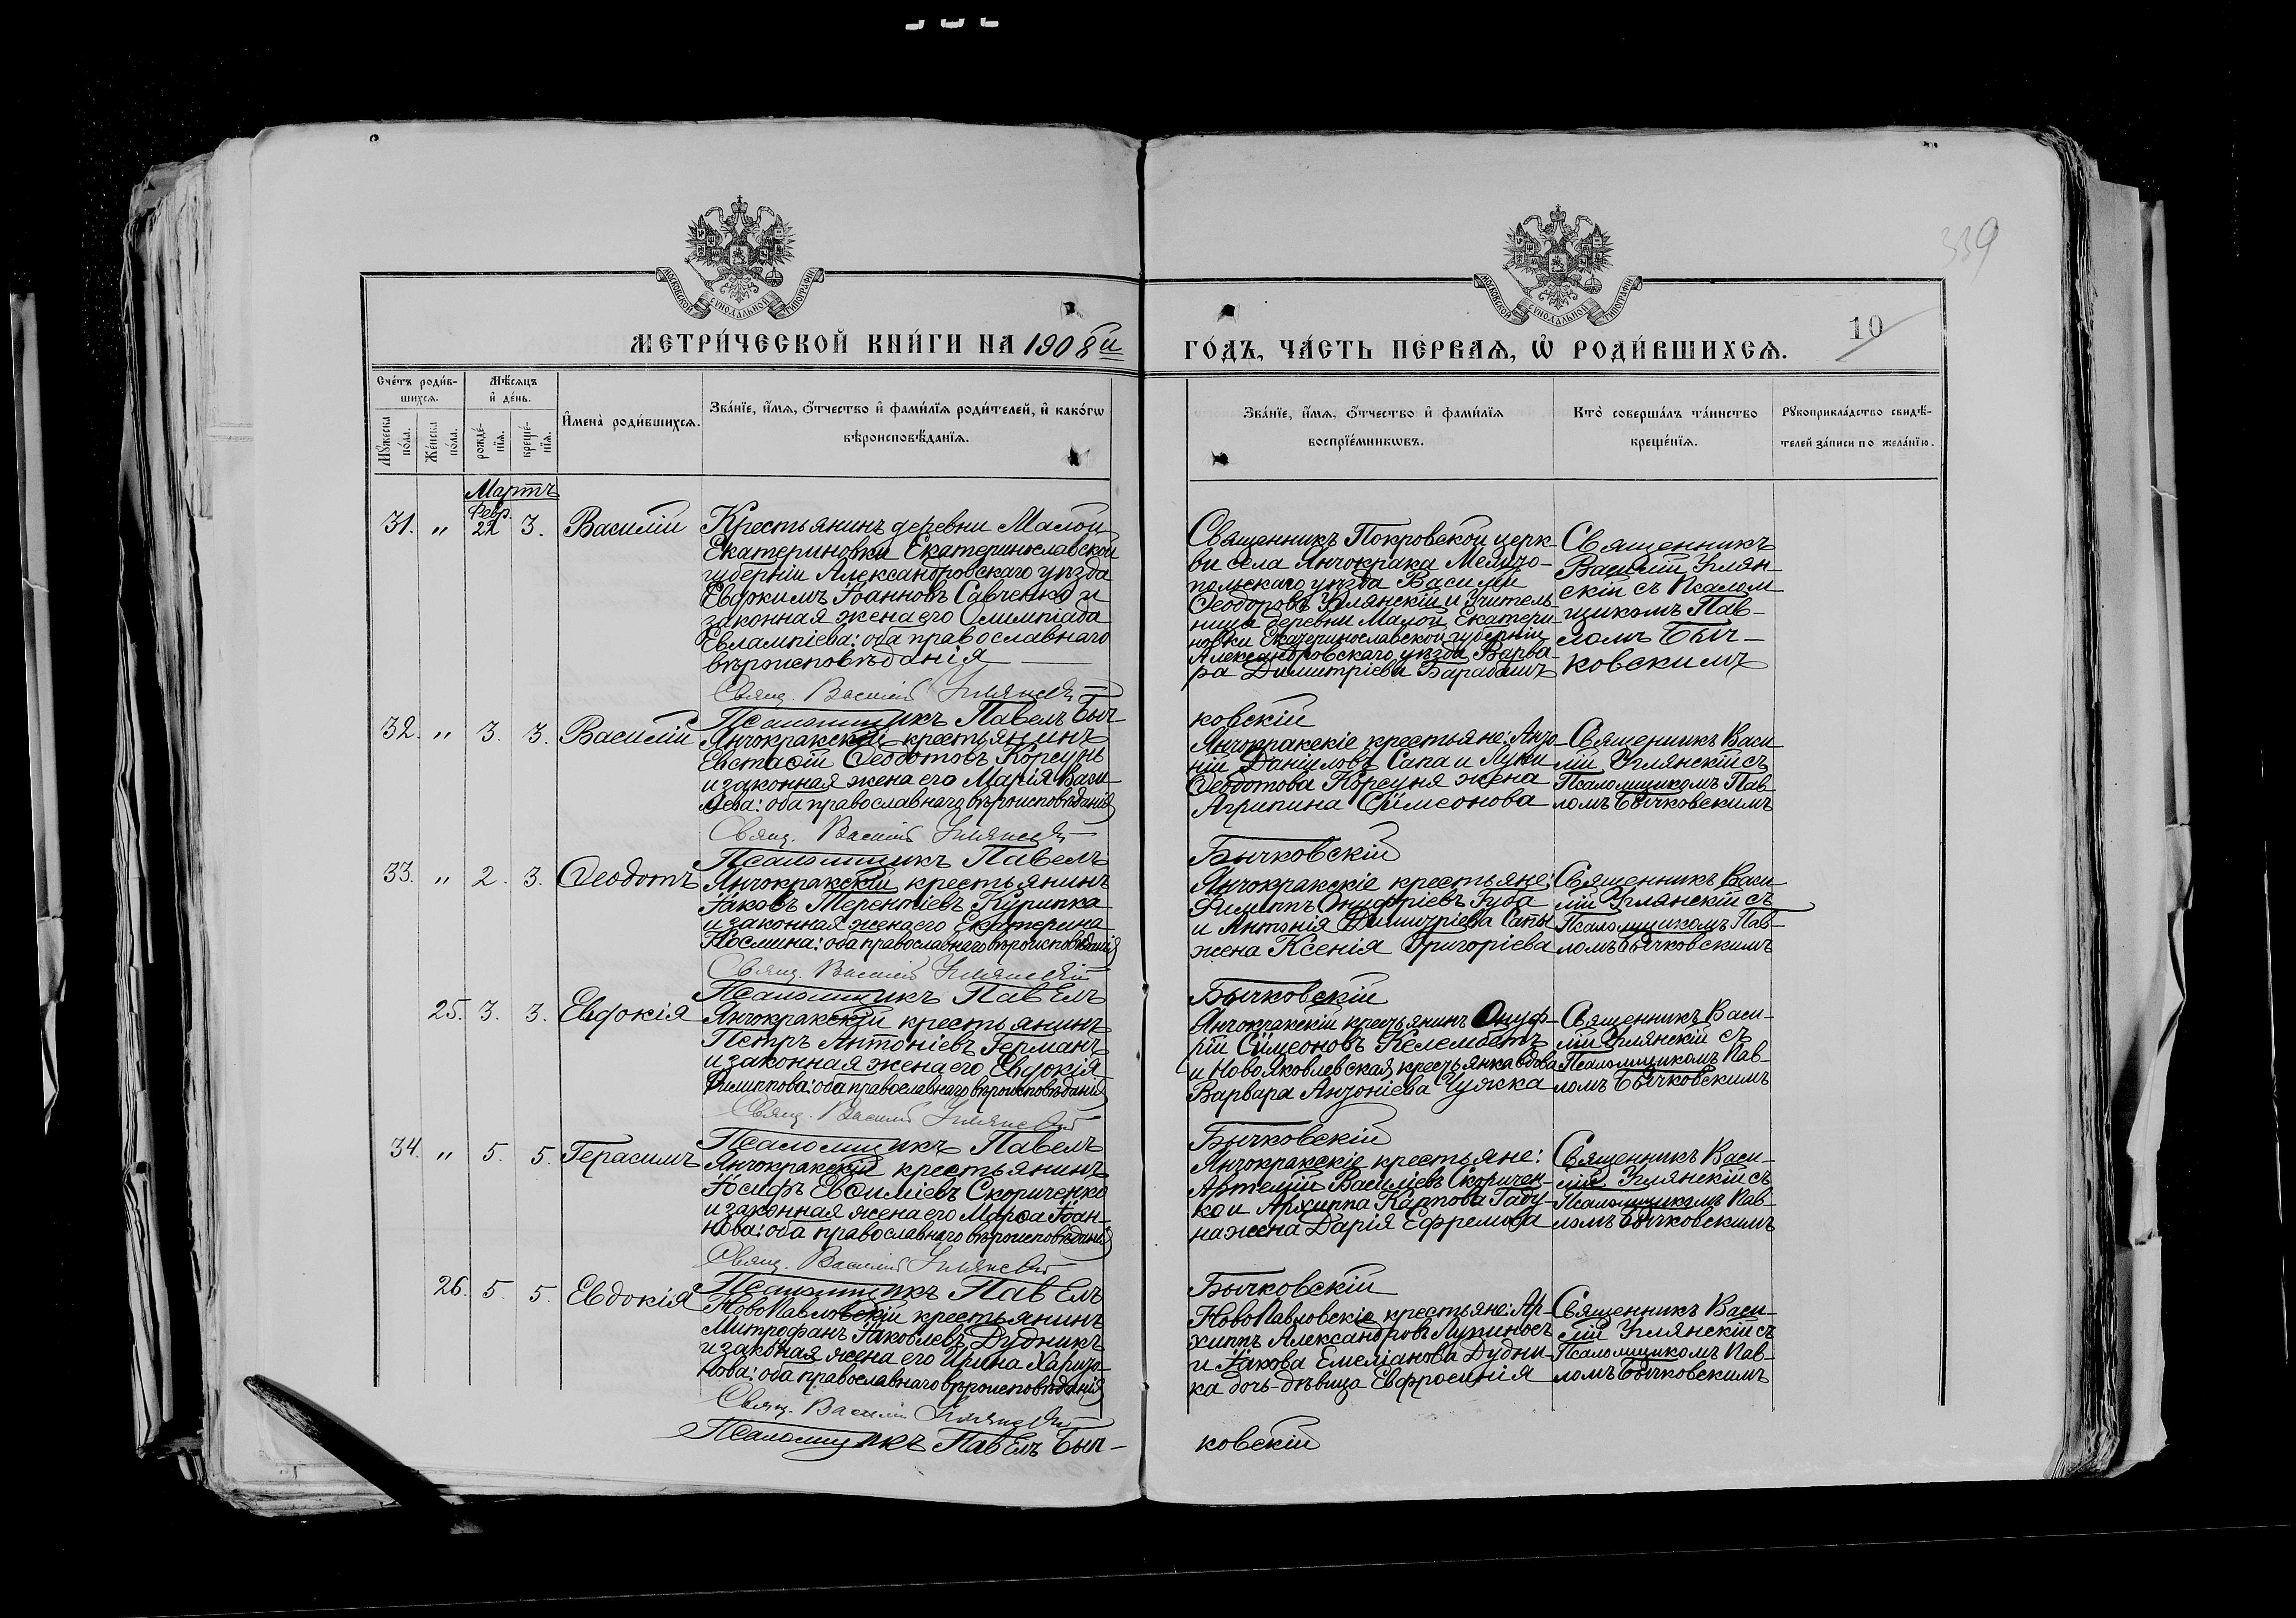 339
МОСКОВСКОЙ СѴНОДАЛЬНОЙ ТИПОГРАФІИ
МОСКОВСКОЙ СѴНОДАЛЬНОЙ ТИПОГРАФІИ
МЕТРИ́ЧЕСКОЙ КНИ́ГИ НА 1908й
ГО́ДЪ, ЧА́СТЬ ПЕ́РВАѦ, Ѡ҆ РОДИ́ВШИХСѦ.
10
Сче́тъ роди́в-
шихсѧ.
Мѣ́сѧцъ
и҆ де́нь.
Мꙋ́жеска по́ла.
Же́нска по́ла.
рожде́-
нїѧ.
креще́-
нїѧ.
И҆мена̀ роди́вшихсѧ.
Зва́нїе, и҆́мѧ, ѻ҆́тчество и҆ фами́лїѧ роди́телей, и҆ како́гѡ
вѣроисповѣ́данїѧ.
Зва́нїе, и҆́мѧ, ѻ҆́тчество и҆ фами́лїѧ
воспрїе́мникѡвъ.
Кто̀ соверша́лъ та́инство
креще́нїѧ.
Рꙋкоприкла́дство свидѣ́-
телей за́писи по жела́нїю.
Мартъ
31. " Февр. 22 3. Василій
Крестьянинъ деревни Малой
Екатериновки Екатеринославской
губерніи Александровскаго уѣзда
Евдокимъ Іоанновъ Савченко и
законная жена его Олимпіада
Евлампіева: оба православнаго
вѣроисповѣданія
Свящ. Василій Углянскій
Псаломщикъ Павелъ Быч-
Священникъ Покровской церк-
ви села Янчокрака Мелито-
польскаго уѣзда Василій
Ѳеодоровъ Углянскій и Учитель-
ница деревни Малой Екатери-
новки Екатеринославской губерніи
Александровскаго уѣзда Варва-
ра Димитріева Барабашъ
ковскій
Священникъ
Василій Углян-
скій съ Псалом-
щикомъ Пав-
ломъ Быч-
ковскимъ
32. " 3. 3. Василій
Янчокракскій крестьянинъ
Евстаѳій Ѳеодотовъ Корсунь
и законная жена его Марія Васи-
льева: оба православнаго вѣроисповѣданія
Свящ. Василій Углянскій
Псаломщикъ Павелъ
Янчокракскіе крестьяне: Анто-
ній Даніиловъ Сапа и Луки
Ѳеодотова Корсуня жена
Агрипина Сѵмеонова
Бычковскій
Священникъ Васи-
лій Углянскій съ
Псаломщикомъ Пав-
ломъ Бычковскимъ
33. " 2. 3. Ѳеодотъ
Янчокракскій крестьянинъ
Іаковъ Терентіевъ Курипка
и законная жена его Екатерина
Космина: оба православнаго вѣроисповѣданія
Свящ. Василій Углянскій
Псаломщикъ Павелъ
Янчокракскіе крестьяне:
Филиппъ Онуфріевъ Губа
и Антонія Димитріева Сапы
жена Ксенія Григоріева
Бычковскій
Священникъ Васи-
лій Углянскій съ
Псаломщикомъ Пав-
ломъ Бычковскимъ
25. 3. 3. Евдокія
Янчокракскій крестьянинъ
Петръ Антоніевъ Германъ
и законная жена его Евдокія
Филиппова: оба православнаго вѣроисповѣданія
Свящ. Василій Углянскій
Псаломщикъ Павелъ
Янчокракскій крестьянинъ Онуф-
рій Сѵмеоновъ Келембетъ
и Новояковлевская крестьянка вдова
Варвара Антоніева Чужка
Бычковскій
Священникъ Васи-
лій Углянскій съ
Псаломщикомъ Пав-
ломъ Бычковскимъ
34. " 5. 5. Герасимъ
Янчокракскій крестьянинъ
Іосифъ Евѳиміевъ Скориченко
и законная жена его Марѳа Іоан-
нова: оба православнаго вѣроисповѣданія
Свящ. Василій Углянскій
Псаломщикъ Павелъ
Янчокракскіе крестьяне:
Артемій Василіевъ Скоричен-
ко и Архиппа Карпова Габу-
на жена Дарія Ефремова
Бычковскій
Священникъ Васи-
лій Углянскій съ
Псаломщикомъ Пав-
ломъ Бычковскимъ
26. 5. 5. Евдокія
НовоПавловскій крестьянинъ
Митрофанъ Іаковлевъ Дудникъ
и законная жена его Ирина Харито-
нова: оба православнаго вѣроисповѣданія
Свящ. Василій Углянскій
Псаломщикъ Павелъ Быч-
НовоПавловскіе крестьяне: Ар-
хиппъ Александровъ Лупиносъ
и Іакова Емеліанова Дудни-
ка дочь-дѣвица Евфросинія
ковскій
Священникъ Васи-
лій Углянскій съ
Псаломщикомъ Пав-
ломъ Бычковскимъ